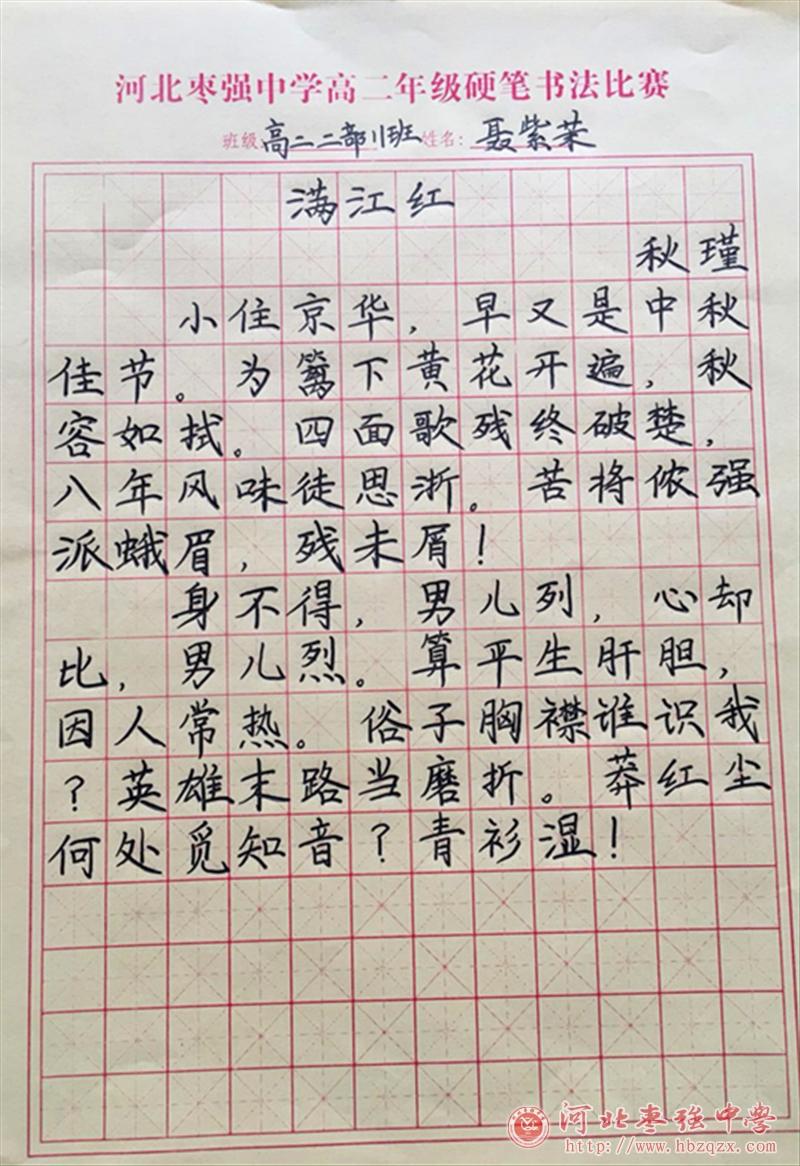 河北枣强中学高二年级硬笔书法比赛
班级:高二二部11班 姓名:聂紫茉
满江红
秋瑾
小住京华，早又是中秋
佳节。为篱下黄花开遍，秋
容如拭。四面歌残终破楚，
八年风味徒思浙。苦将侬强
派蛾眉，残未屑！
身不得，男儿列，心却
比，男儿烈。算平生肝胆，
因人常热。俗子胸襟谁识我
？英雄末路当磨折。莽红尘
何处觅知音？青衫湿！
河北枣强中學
http://www.hbzqzx.com